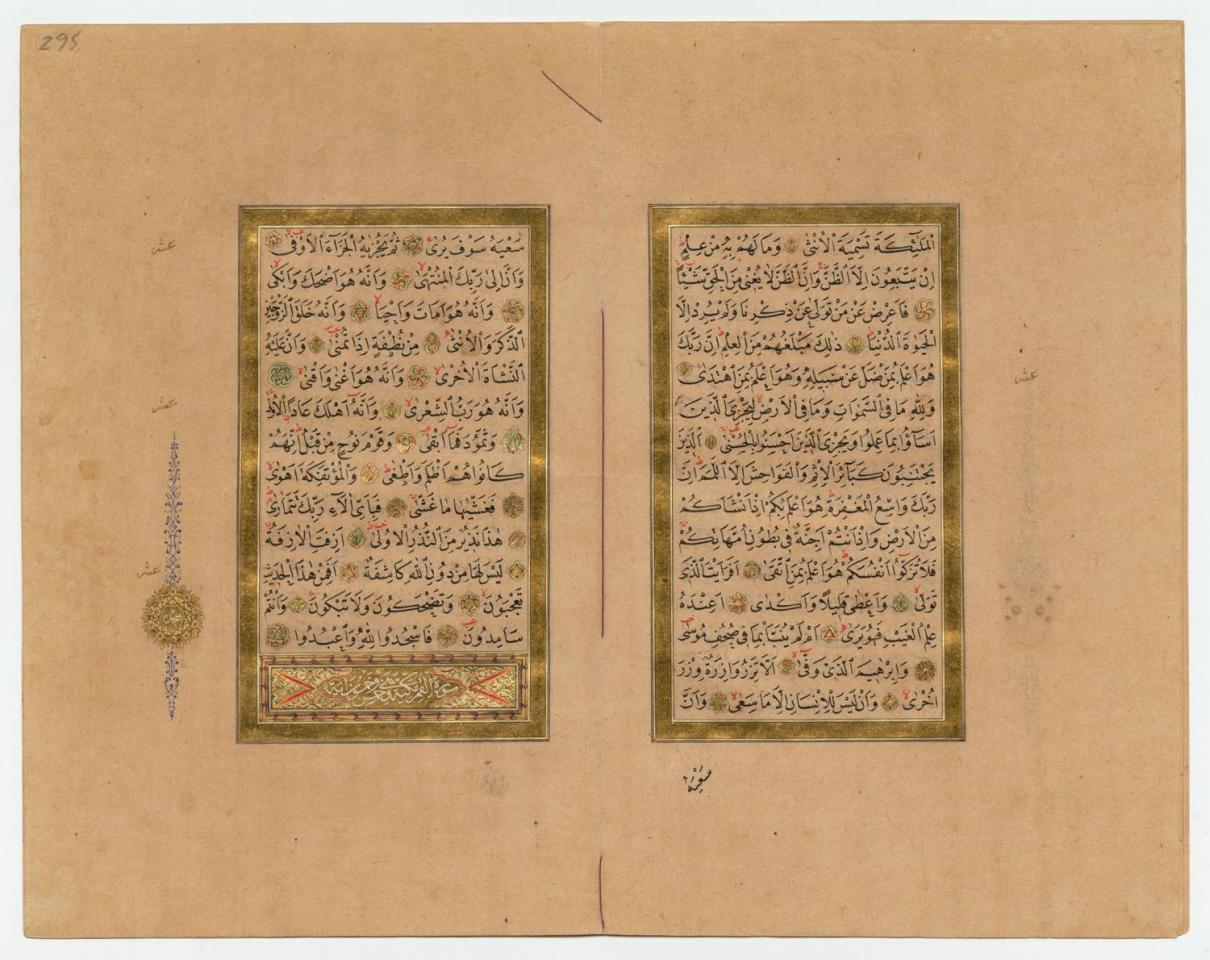 الْمَلٰٓئِكَةَ تَسْمِيَةَ الْاُنْثٰى وَمَا لَهُمْ بِهٖ مِنْ عِلْمٍ
اِنْ يَتَّبِعُونَ اِلَّا الظَّنَّ وَاِنَّ الظَّنَّ لَا يُغْنٖى مِنَ الْحَقِّ شَيْئًا
فَاَعْرِضْ عَنْ مَنْ تَوَلّٰى عَنْ ذِكْرِنَا وَلَمْ يُرِدْ اِلَّا
الْحَيٰوةَ الدُّنْيَا ذٰلِكَ مَبْلَغُهُمْ مِنَ الْعِلْمِ اِنَّ رَبَّكَ
هُوَ اَعْلَمُ بِمَنْ ضَلَّ عَنْ سَبٖيلِهٖ وَهُوَ اَعْلَمُ بِمَنِ اهْتَدٰى
وَلِلّٰهِ مَا فِى السَّمٰوَاتِ وَمَا فِى الْاَرْضِ لِيَجْزِىَ الَّذٖينَ
اَسَاؤُا بِمَا عَمِلُوا وَيَجْزِىَ الَّذٖينَ اَحْسَنُوا بِالْحُسْنٰى اَلَّذٖينَ
يَجْتَنِبُونَ كَبَائِرَ الْاِثْمِ وَالْفَوَاحِشَ اِلَّا اللَّمَمَ اِنَّ
رَبَّكَ وَاسِعُ الْمَغْفِرَةِ هُوَ اَعْلَمُ بِكُمْ اِذْ اَنْشَاَكُمْ
مِنَ الْاَرْضِ وَاِذْ اَنْتُمْ اَجِنَّةٌ فٖى بُطُونِ اُمَّهَاتِكُمْ
فَلَا تُزَكُّوا اَنْفُسَكُمْ هُوَ اَعْلَمُ بِمَنِ اتَّقٰى اَفَرَاَيْتَ الَّذٖى
تَوَلّٰى وَاَعْطٰى قَلٖيلًا وَاَكْدٰى اَعِنْدَهُ
عِلْمُ الْغَيْبِ فَهُوَ يَرٰى اَمْ لَمْ يُنَبَّأْ بِمَا فٖى صُحُفِ مُوسٰى
وَاِبْرٰهٖيمَ الَّذٖى وَفّٰى اَلَّا تَزِرُ وَازِرَةٌ وِزْرَ
اُخْرٰى وَاَنْ لَيْسَ لِلْاِنْسَانِ اِلَّا مَا سَعٰى وَاَنَّ
سَعْيَهُ
عشر
295
سَعْيَهُ سَوْفَ يُرٰى ثُمَّ يُجْزٰيهُ الْجَزَاءَ الْاَوْفٰى
وَاَنَّ اِلٰى رَبِّكَ الْمُنْتَهٰى وَاَنَّهُ هُوَ اَضْحَكَ وَاَبْكٰى
وَاَنَّهُ هُوَ اَمَاتَ وَاَحْيَا وَاَنَّهُ خَلَقَ الزَّوْجَيْنِ
الذَّكَرَ وَالْاُنْثٰى مِنْ نُطْفَةٍ اِذَا تُمْنٰى وَاَنَّ عَلَيْهِ
النَّشْاَةَ الْاُخْرٰى وَاَنَّهُ هُوَ اَغْنٰى وَاَقْنٰى
وَاَنَّهُ هُوَ رَبُّ الشِّعْرٰى وَاَنَّهُ اَهْلَكَ عَادًا الْاُولٰى
وَثَمُودَ فَمَا اَبْقٰى وَقَوْمَ نُوحٍ مِنْ قَبْلُ اِنَّهُمْ
كَانُوا هُمْ اَظْلَمَ وَاَطْغٰى وَالْمُؤْتَفِكَةَ اَهْوٰى
فَغَشّٰيهَا مَا غَشّٰى فَبِاَىِّ اٰلَاءِ رَبِّكَ تَتَمَارٰى
هٰذَا نَذٖيرٌ مِنَ النُّذُرِ الْاُولٰى اَزِفَتِ الْاٰزِفَةُ
لَيْسَ لَهَا مِنْ دُونِ اللّٰهِ كَاشِفَةٌ اَفَمِنْ هٰذَا الْحَدٖيثِ
تَعْجَبُونَ وَتَضْحَكُونَ وَلَا تَبْكُونَ وَاَنْتُمْ
سَامِدُونَ فَاسْجُدُوا لِلّٰهِ وَاعْبُدُوا
سورة القمر مكية وهى خمس وخمسون اية
عشر
عشر
عشر